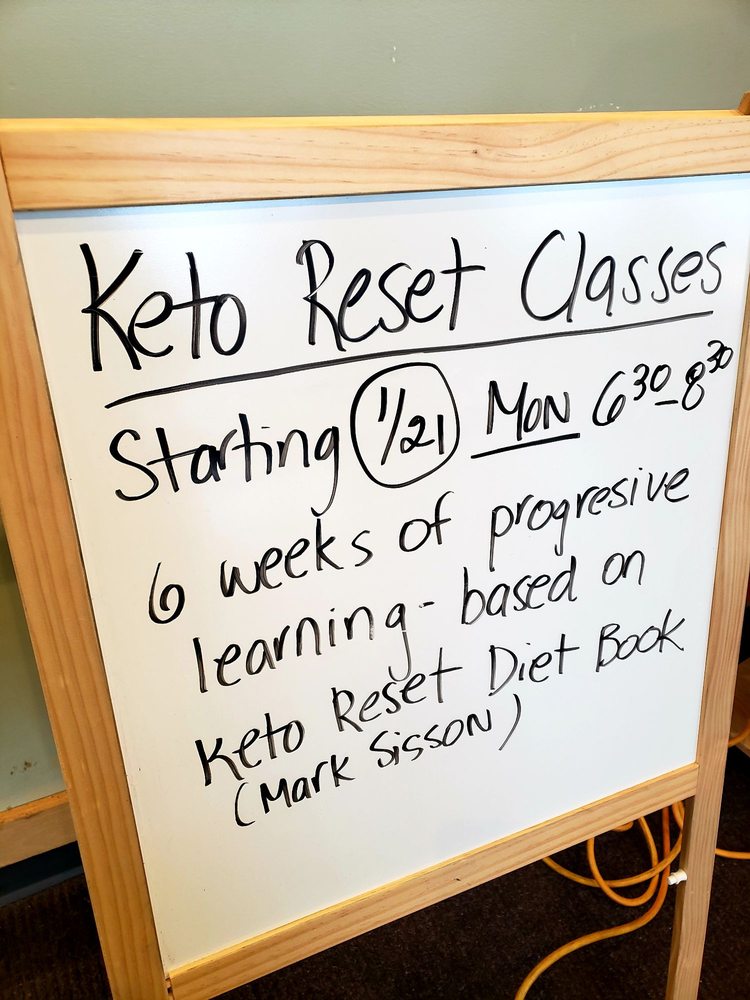 Keto Reset Classes
Starting 1/21 MON 6³⁰-8³⁰
6 weeks of progresive
learning - based on
Keto Reset Diet Book
(Mark Sisson)